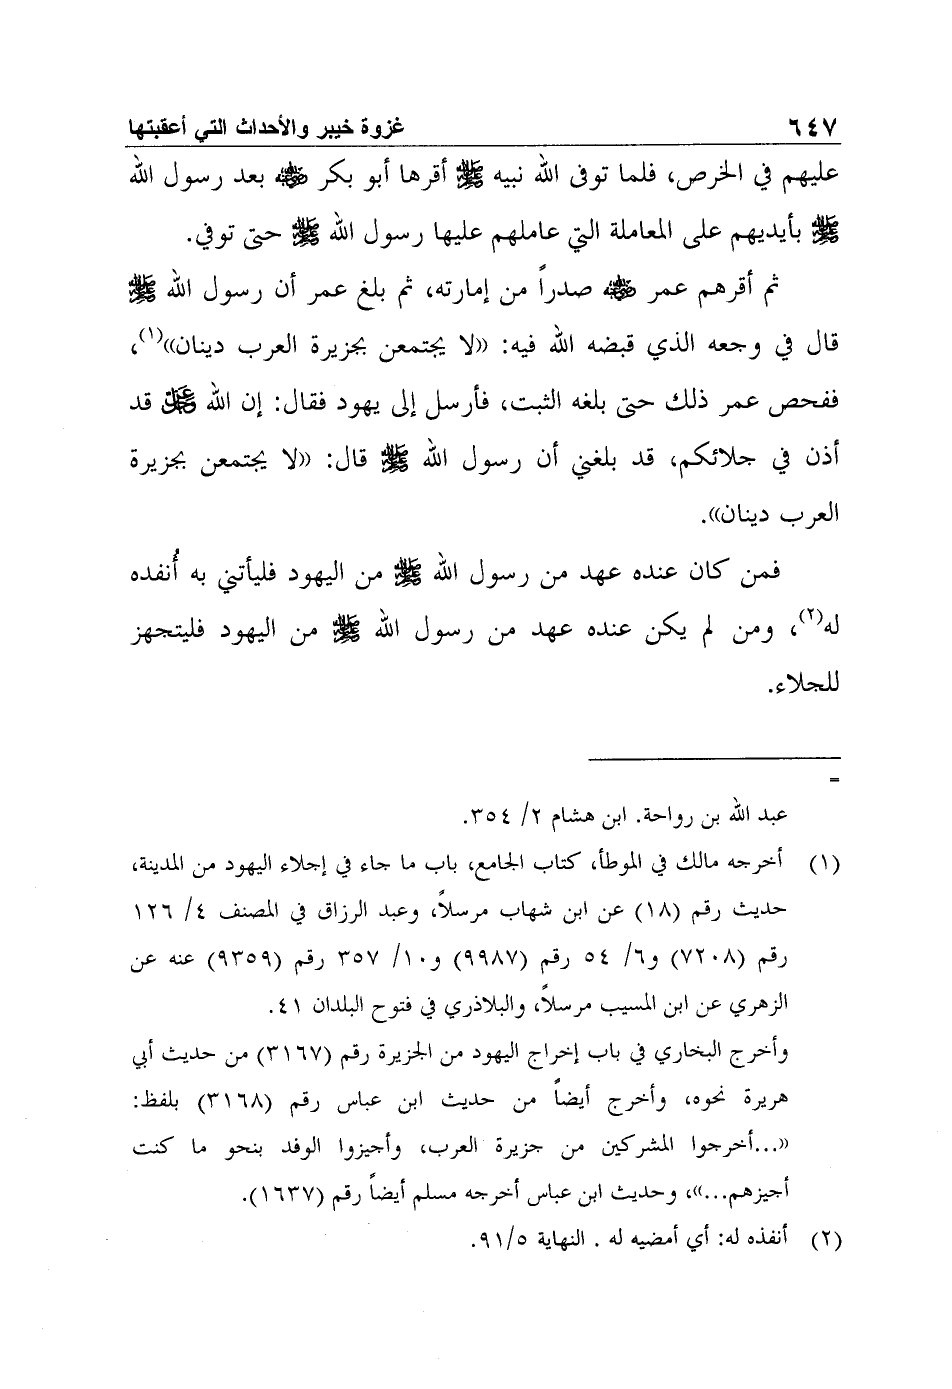 ٦٤٧ غزوة خيبر والأحداث التي أعقبتها
عليهم في الخرص، فلما توفى الله نبيه ﷺ أقرها أبو بكر رضي الله عنه بعد رسول الله
ﷺ بأيديهم على المعاملة التي عاملهم عليها رسول الله ﷺ حتى توفي.
ثم أقرهم عمر رضي الله عنه صدراً من إمارته، ثم بلغ عمر أن رسول الله ﷺ
قال في وجعه الذي قبضه الله فيه: «لا يجتمعن بجزيرة العرب دينان»(١)،
ففحص عمر ذلك حتى بلغه الثبت، فأرسل إلى يهود فقال: إن الله عز وجل قد
أذن في جلائكم، قد بلغني أن رسول الله ﷺ قال: «لا يجتمعن بجزيرة
العرب دينان».
فمن كان عنده عهد من رسول الله ﷺ من اليهود فليأتني به أُنفده
له(٢)، ومن لم يكن عنده عهد من رسول الله ﷺ من اليهود فليتجهز
للجلاء.
=
عبد الله بن رواحة. ابن هشام ٢/ ٣٥٤.
(١) أخرجه مالك في الموطأ، كتاب الجامع، باب ما جاء في إجلاء اليهود من المدينة،
حديث رقم (١٨) عن ابن شهاب مرسلاً، وعبد الرزاق في المصنف ٤/ ١٢٦
رقم (٧٢٠٨) و٦/ ٥٤ رقم (٩٩٨٧) و١٠/ ٣٥٧ رقم (٩٣٥٩) عنه عن
الزهري عن ابن المسيب مرسلاً، والبلاذري في فتوح البلدان ٤١.
وأخرج البخاري في باب إخراج اليهود من الجزيرة رقم (٣١٦٧) من حديث أبي
هريرة نحوه، وأخرج أيضاً من حديث ابن عباس رقم (٣١٦٨) بلفظ:
«...أخرجوا المشركين من جزيرة العرب، وأجيزوا الوفد بنحو ما كنت
أجيزهم...»، وحديث ابن عباس أخرجه مسلم أيضاً رقم (١٦٣٧).
(٢) أنفذه له: أي أمضيه له . النهاية ٩١/٥.